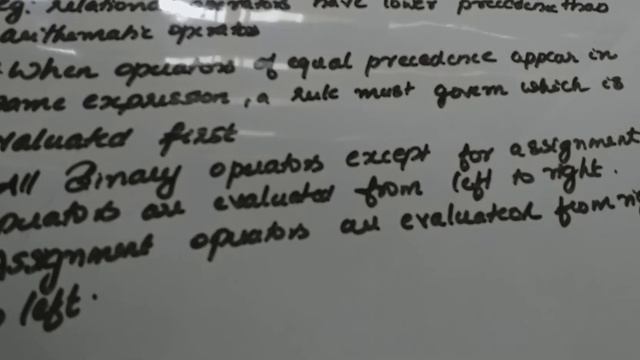 eg. relational operators have lower precedence than
arithematic operators
When operators of equal precedence appear in
same expression, a rule must govern which is
evaluated first
All Binary operators except for assignment
operators are evaluated from left to right.
Assignment operators are evaluated from right
to left.